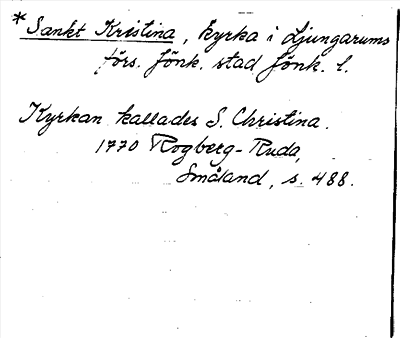 *Sankt Kristina, kyrka i Ljungarums
förs. Jönk. stad Jönk. l.
Kyrkan kallades S. Christina.
1770 Rogberg-Ruda,
Småland, s. 488.